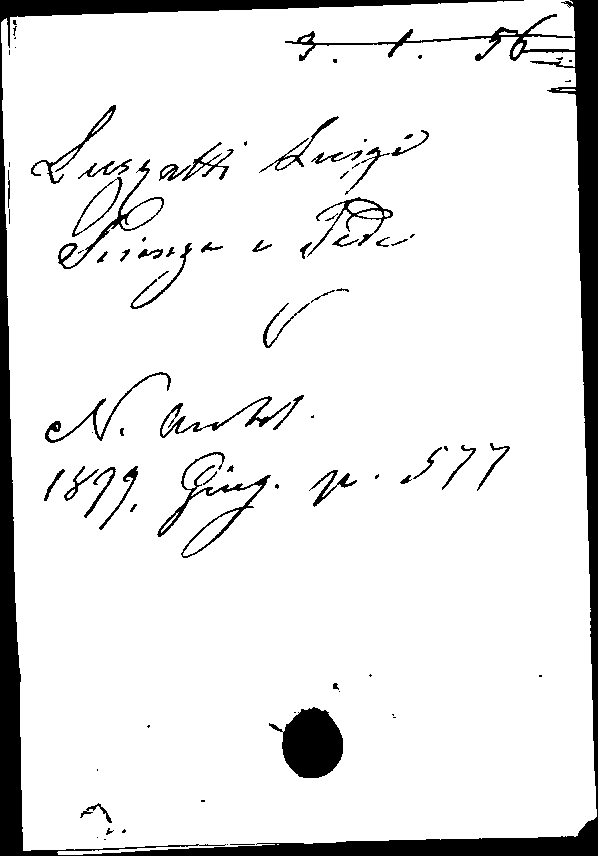 3. 1. 56
Luzzatti Luigi
Scienza e Fede
N. Antol.
1899. Giug. p. 577